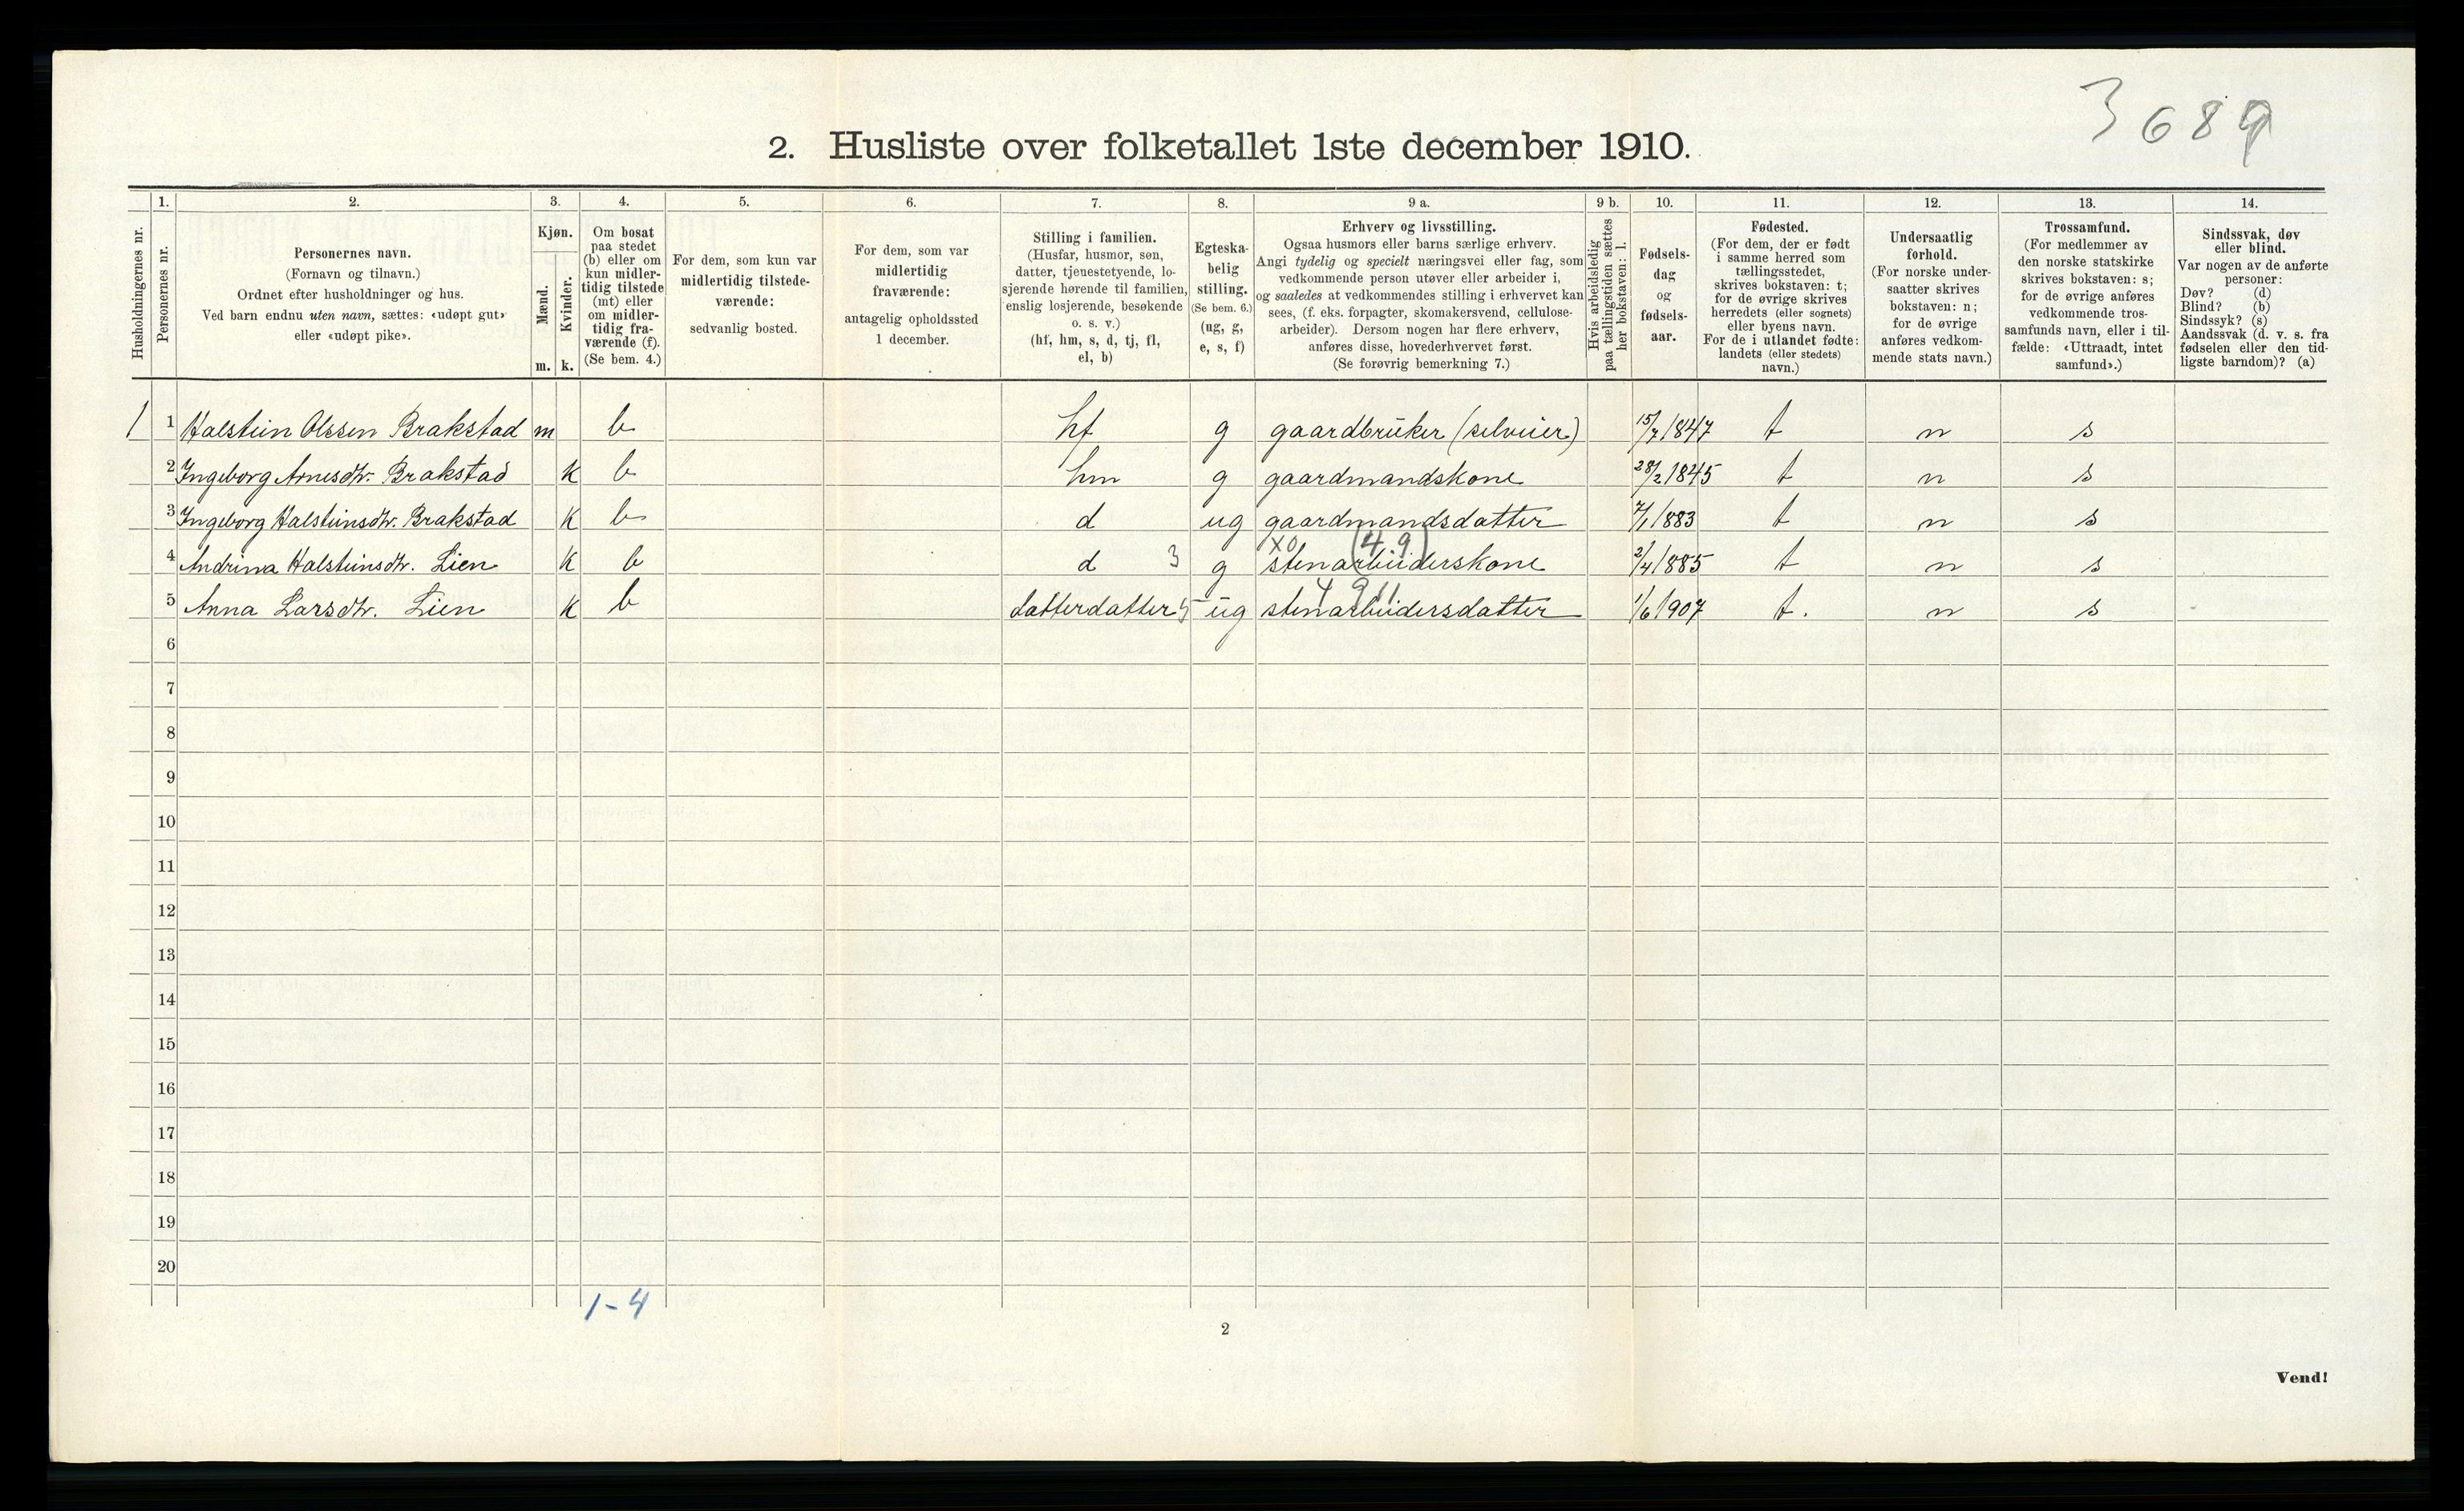 3689
2. Husliste over folketallet 1ste december 1910.
Husholdningernes nr.
1.
Personernes nr.
2.
Personernes navn.
(Fornavn og tilnavn.)
Ordnet efter husholdninger og hus.
Ved barn endnu uten navn, sættes: «udøpt gut»
eller «udøpt pike».
3.
Kjøn.
Mænd.
m.
Kvinder.
k.
4.
Om bosat
paa stedet
(b) eller om
kun midler-
tidig tilstede
(mt) eller
om midler-
tidig fra-
værende (f).
(Se bem. 4.)
5.
For dem, som kun var
midlertidig tilstede-
værende:
sedvanlig bosted.
6.
For dem, som var
midlertidig
fraværende:
antagelig opholdssted
1 december.
7.
Stilling i familien.
(Husfar, husmor, søn,
datter, tjenestetyende, lo-
sjerende hørende til familien,
enslig losjerende, besøkende
o. s. v.)
(hf, hm, s, d, tj, fl,
el, b)
8.
Egteska-
belig
stilling.
(Se bem. 6.)
(ug, g,
e, s, f)
9 a.
Erhverv og livsstilling.
Ogsaa husmors eller barns særlige erhverv.
Angi tydelig og specielt næringsvei eller fag, som
vedkommende person utøver eller arbeider i,
og saaledes at vedkommendes stilling i erhvervet kan
sees, (f. eks. forpagter, skomakersvend, cellulose-
arbeider). Dersom nogen har flere erhverv,
anføres disse, hovederhvervet først.
(Se forøvrig bemerkning 7.)
9 b.
Hvis arbeidsledig
paa tællingstiden sættes
her bokstaven: l.
10.
Fødsels-
dag
og
fødsels-
aar.
11.
Fødested.
(For dem, der er født
i samme herred som
tællingsstedet,
skrives bokstaven: t;
for de øvrige skrives
herredets (eller sognets)
eller byens navn.
For de i utlandet fødte:
landets (eller stedets)
navn.)
12.
Undersaatlig
forhold.
(For norske under-
saatter skrives
bokstaven: n;
for de øvrige
anføres vedkom-
mende stats navn.)
13.
Trossamfund.
(For medlemmer av
den norske statskirke
skrives bokstaven: s;
for de øvrige anføres
vedkommende tros-
samfunds navn, eller i til-
fælde: «Uttraadt, intet
samfund».)
14.
Sindssvak, døv
eller blind.
Var nogen av de anførte
personer:
Døv? (d)
Blind? (b)
Sindssyk? (s)
Aandssvak (d. v. s. fra
fødselen eller den tid-
ligste barndom)? (a)
1 1 Halstein Olssen Brakstad m b hf g gaardbruker (selveier) 15/7 1847 t n s
2 Ingeborg Arnesdtr. Brakstad k b hm g gaardmandskone 28/2 1845 t n s
3 Ingeborg Halsteinsdtr. Brakstad k b d ug gaardmandsdatter 7/1 1883 t n s
x0 (49)
4 Andrina Halsteinsdtr. Lien k b d 3 g stenarbeiderskone 2/4 1885 t n s
4 9 11
5 Anna Larsdtr. Lien k b datterdatter 5 ug stenarbeidersdatter 1/6 1907 t. n s
6
7
8
9
10
11
12
13
14
15
16
17
18
19
20
1-4
2
Vend!